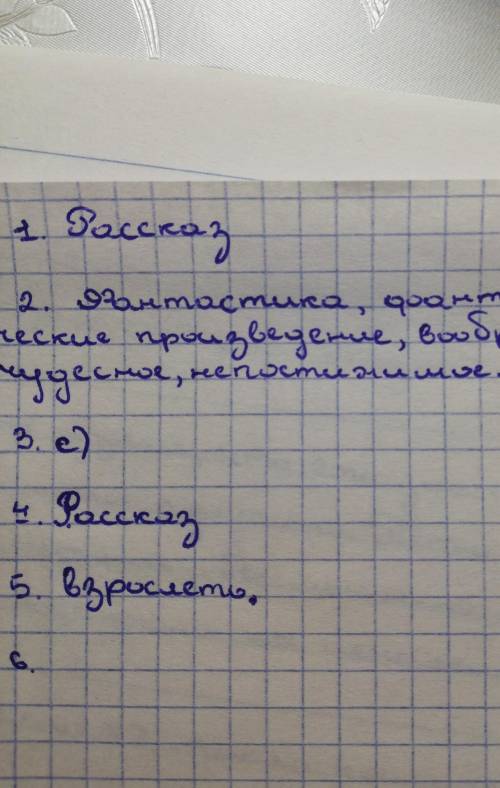 1. Рассказ
2. Фантастика, фант
ческие произведение, вооб
чудесное, непостижимое.
3. с)
4. Рассказ
5. взрослеть.
6.